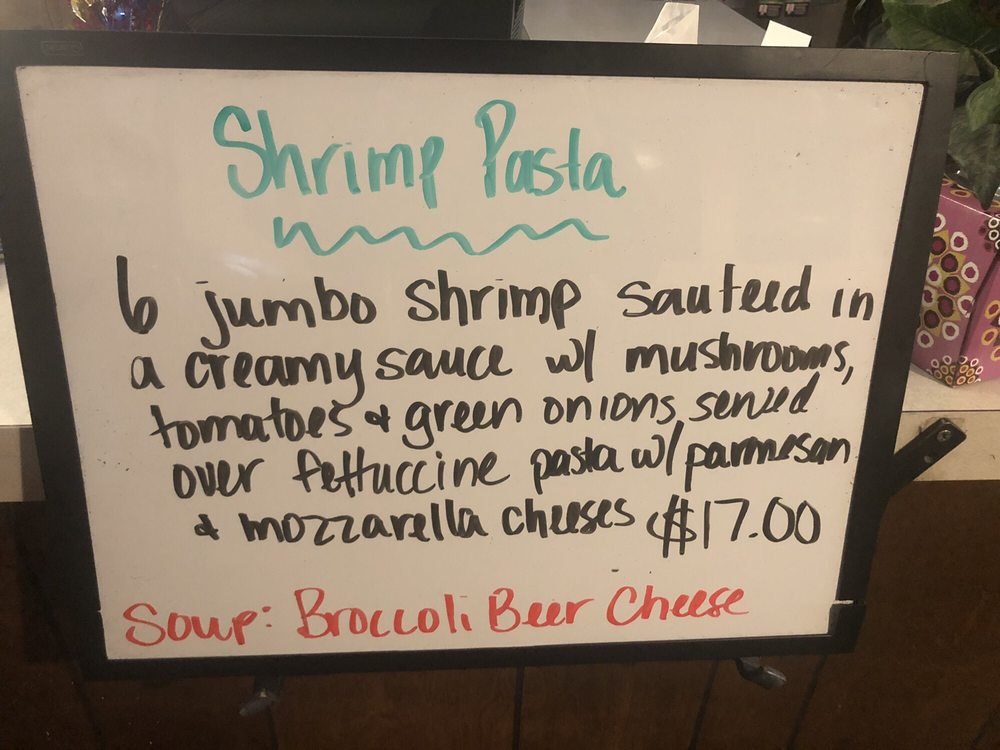 Shrimp Pasta
6 jumbo shrimp sauteed in
a creamy sauce w/ mushrooms,
tomatoes & green onions served
over fettuccine pasta w/ parmesan
& mozzarella cheeses $17.00
Soup: Broccoli Beer Cheese